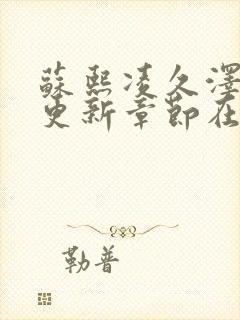 蘇熙凌久澤
更新章節在
勒普